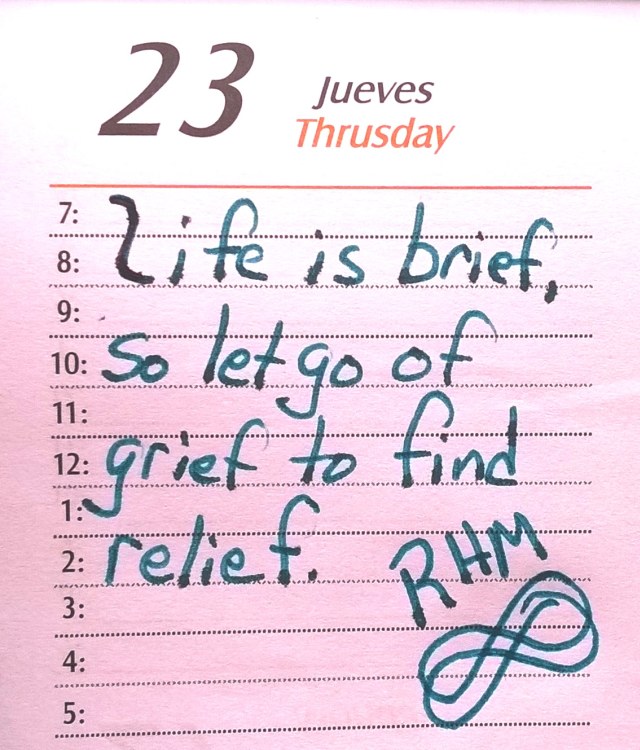 23
Jueves
Thrusday
7: Life is brief,
8:
9:
10: So let go of
11:
12: grief to find
1:
2: relief. RHM
3:
4:
5: